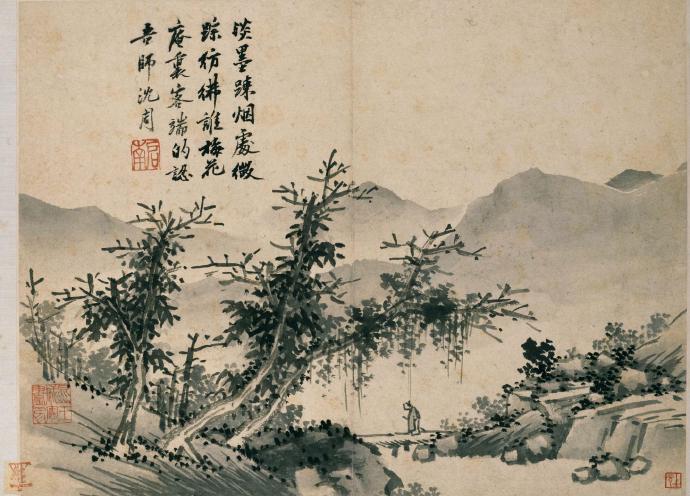 淡墨踈烟處微
踪彷彿誰梅花
庵裏客端的認
吾師沈周